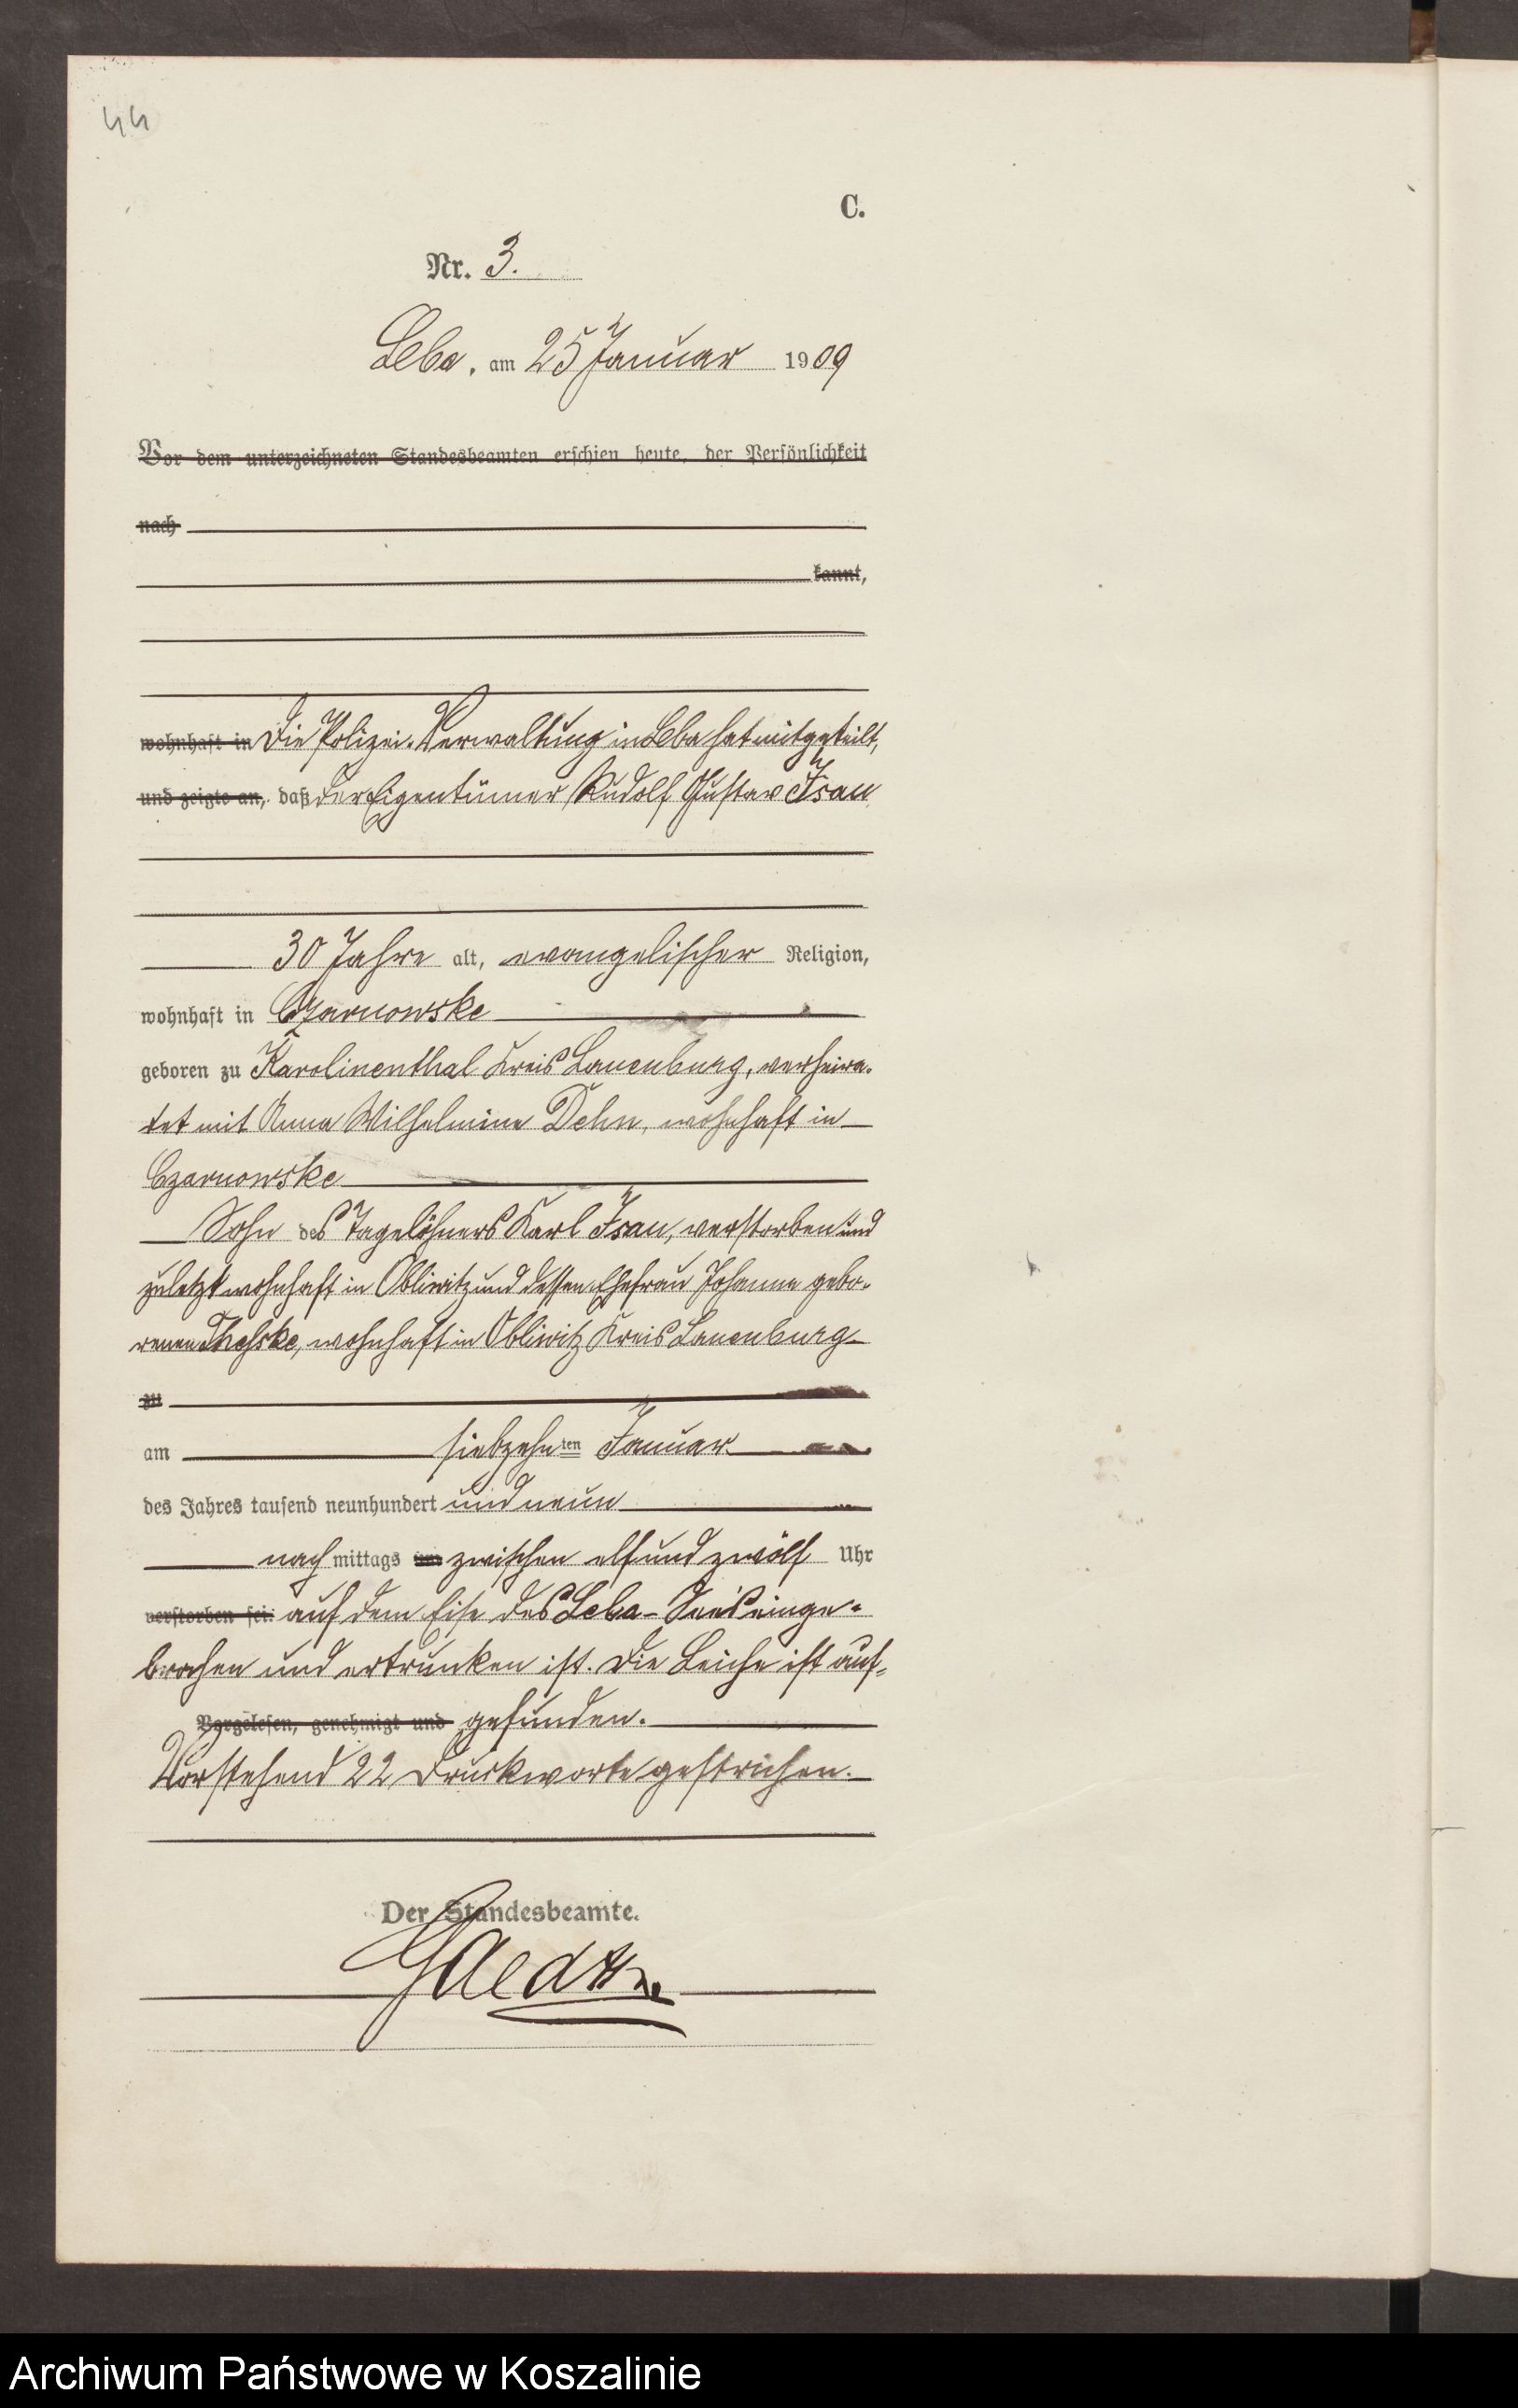 44
C.
Nr. 3.
Leba, am 25 Januar 1909
Vor dem unterzeichneten Standesbeamten erschien heute, der Persönlichkeit
nach
kannt,
wohnhaft in Die Polizei-Verwaltung in Leba hat mitgeteilt,
und zeigte an, daß der Eigentümer Rudolf Gustav Isau
30 Jahre alt, evangelischer Religion,
wohnhaft in Czarnowske
geboren zu Karolinenthal Kreis Lauenburg, verheira-
tet mit Anna Wilhelmine Dehn, wohnhaft in
Czarnowske
Sohn des Tagelöhners Karl Isau, verstorben und
zuletzt wohnhaft in Obliwitz und dessen Ehefrau Johanne gebo-
renen, wohnhaft in Obliwitz Kreis Lauenburg
zu
am siebzehnten Januar
des Jahres tausend neunhundert und neun
nachmittags um zwischen elf und zwölf Uhr
verstorben sei: auf dem Eise des Leba-Sees einge-
brochen und ertrunken ist. Die Leiche ist auf-
Vorgelesen, genehmigt und gefunden.
Vorstehend 22 Druckworte gestrichen.
Der Standesbeamte.
Archiwum Państwowe w Koszalinie